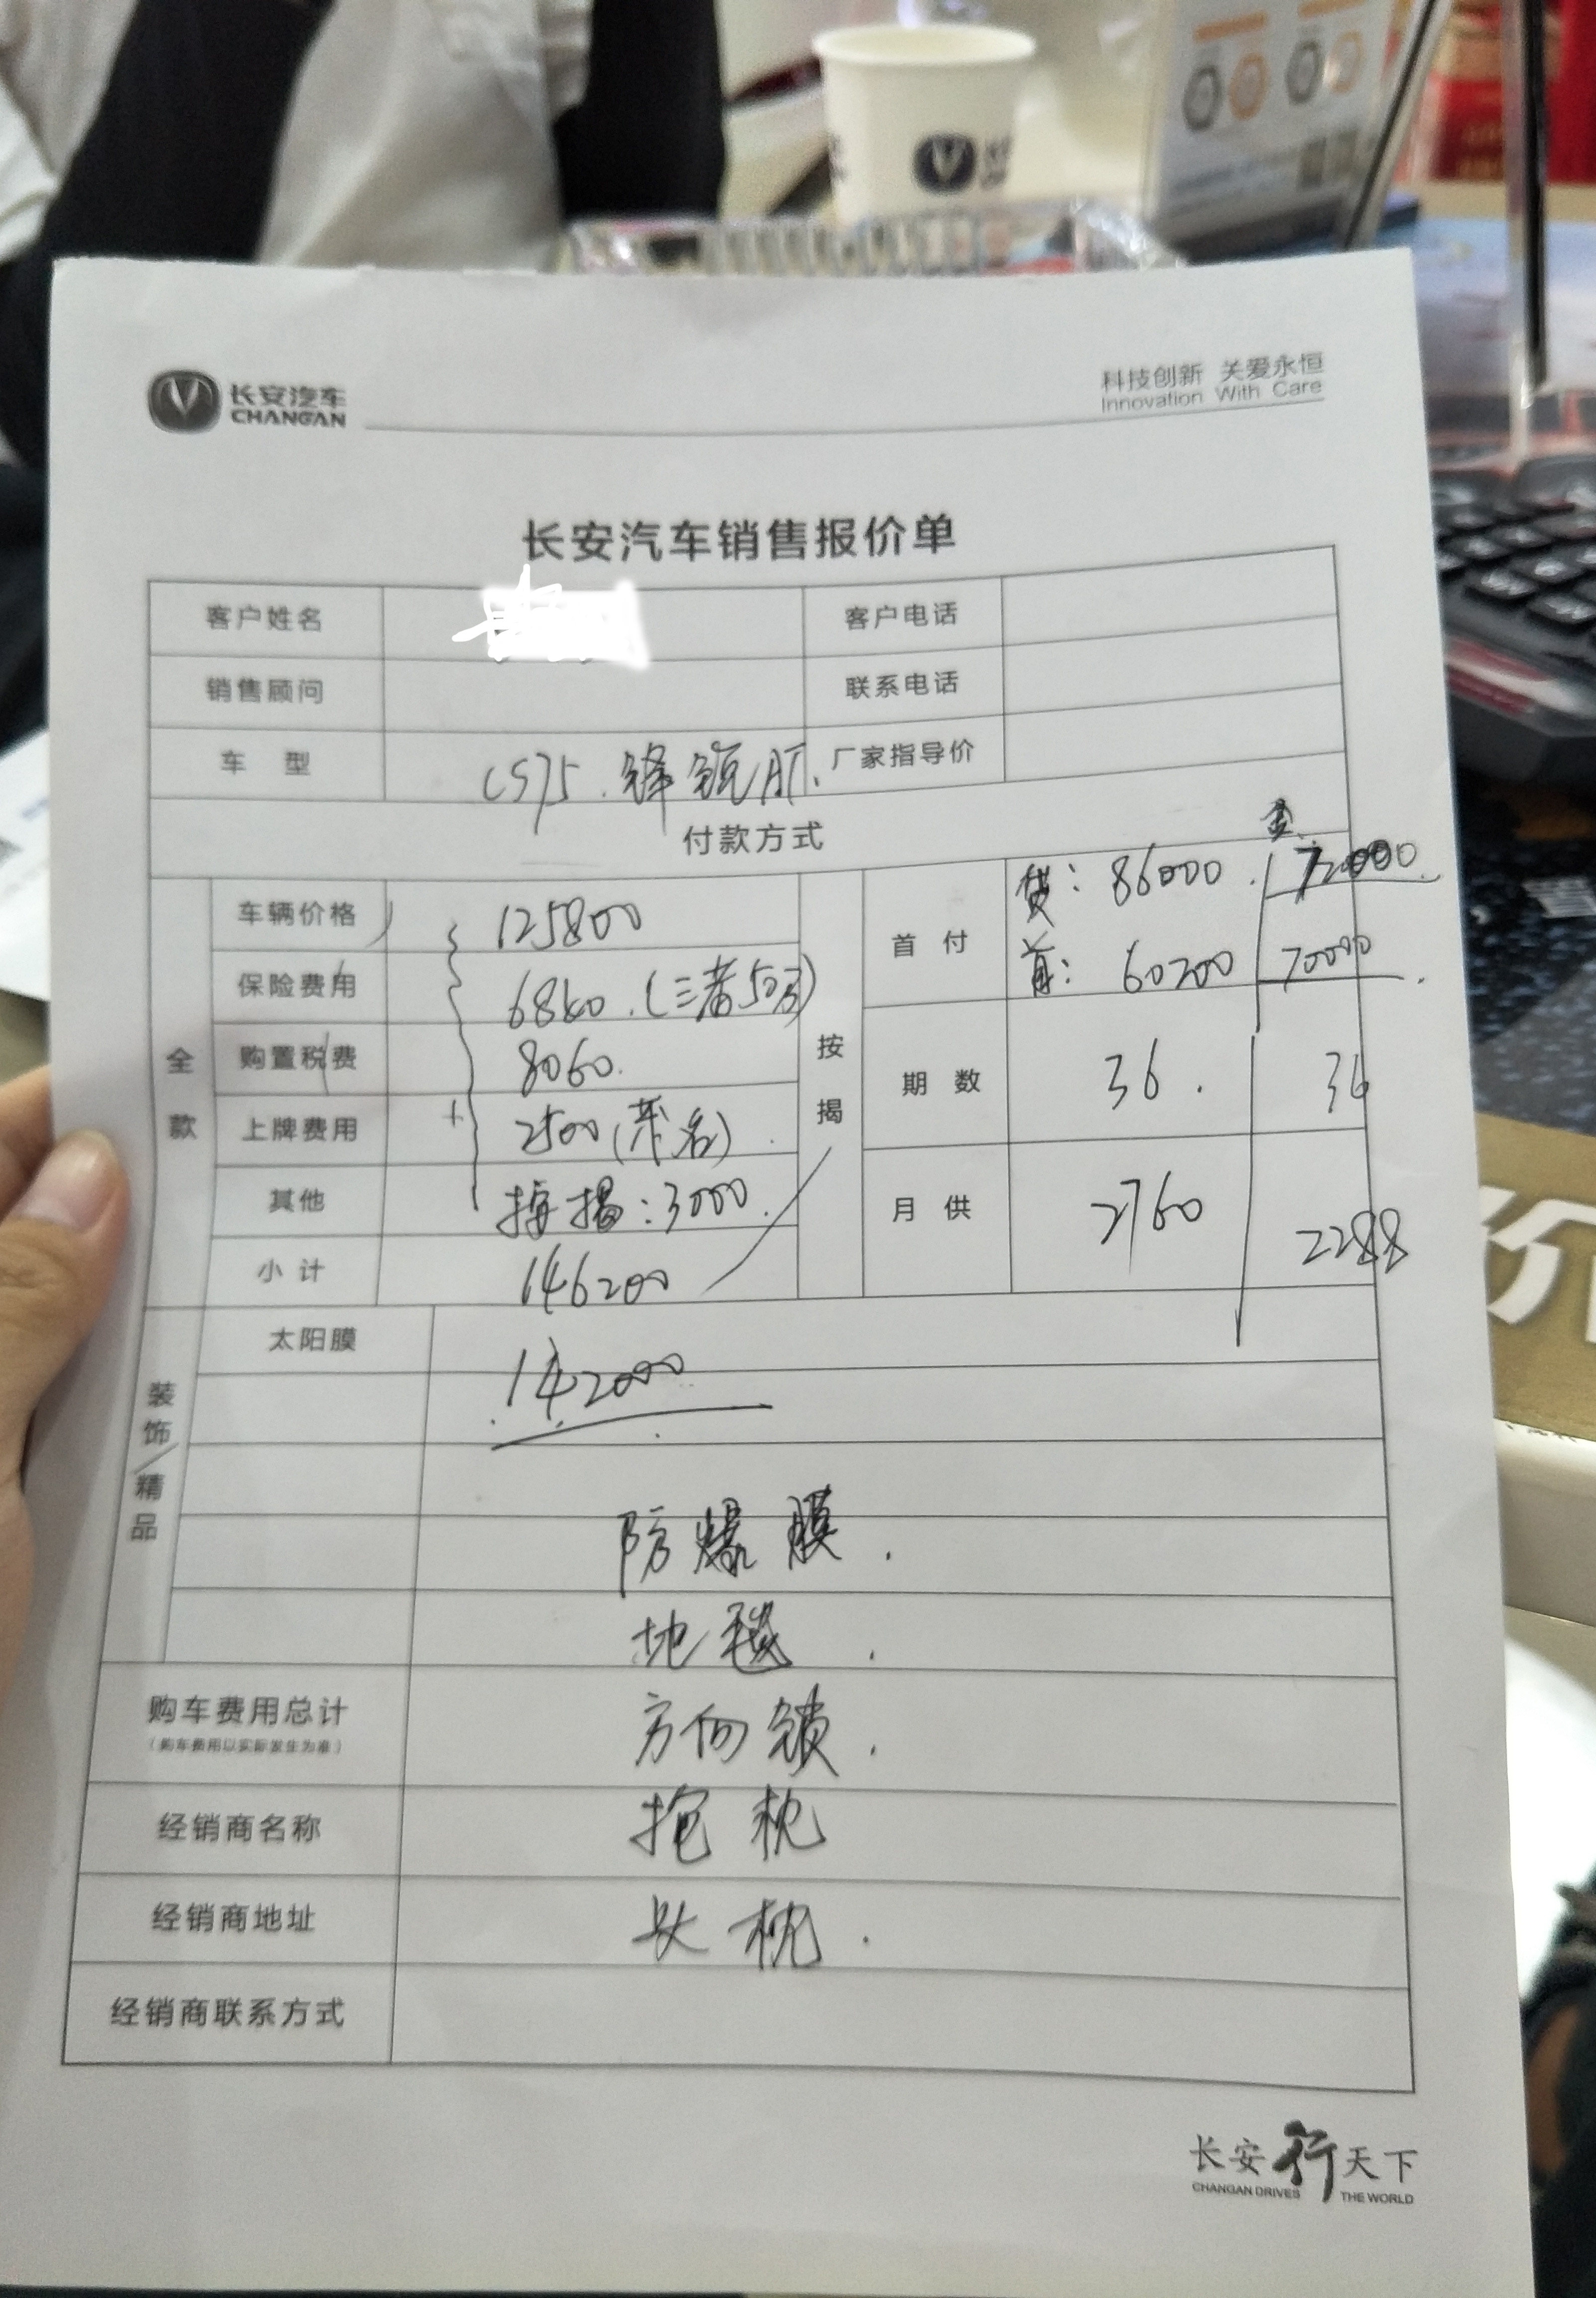 长安汽车
CHANGAN
科技创新 关爱永恒
Innovation With Care
长安汽车销售报价单
客户姓名 客户电话
销售顾问 联系电话
车型 CS75.锋锐版. 厂家指导价
付款方式
全款
车辆价格 125800
保险费用 6840.(三者50万)
购置税费 8060.
上牌费用 + 2500(
其他 按揭:3000.
小计 146200
按揭
首付 贷: 86000. 72000.
首: 60200 70000.
期数 36. 36
月供 2760 2288
装饰/精品
太阳膜
142000
防爆膜.
地毯.
方向锁.
抱枕
头枕.
购车费用总计
(购车费用以实际发生为准)
经销商名称
经销商地址
经销商联系方式
长安行天下
CHANGAN DRIVES THE WORLD